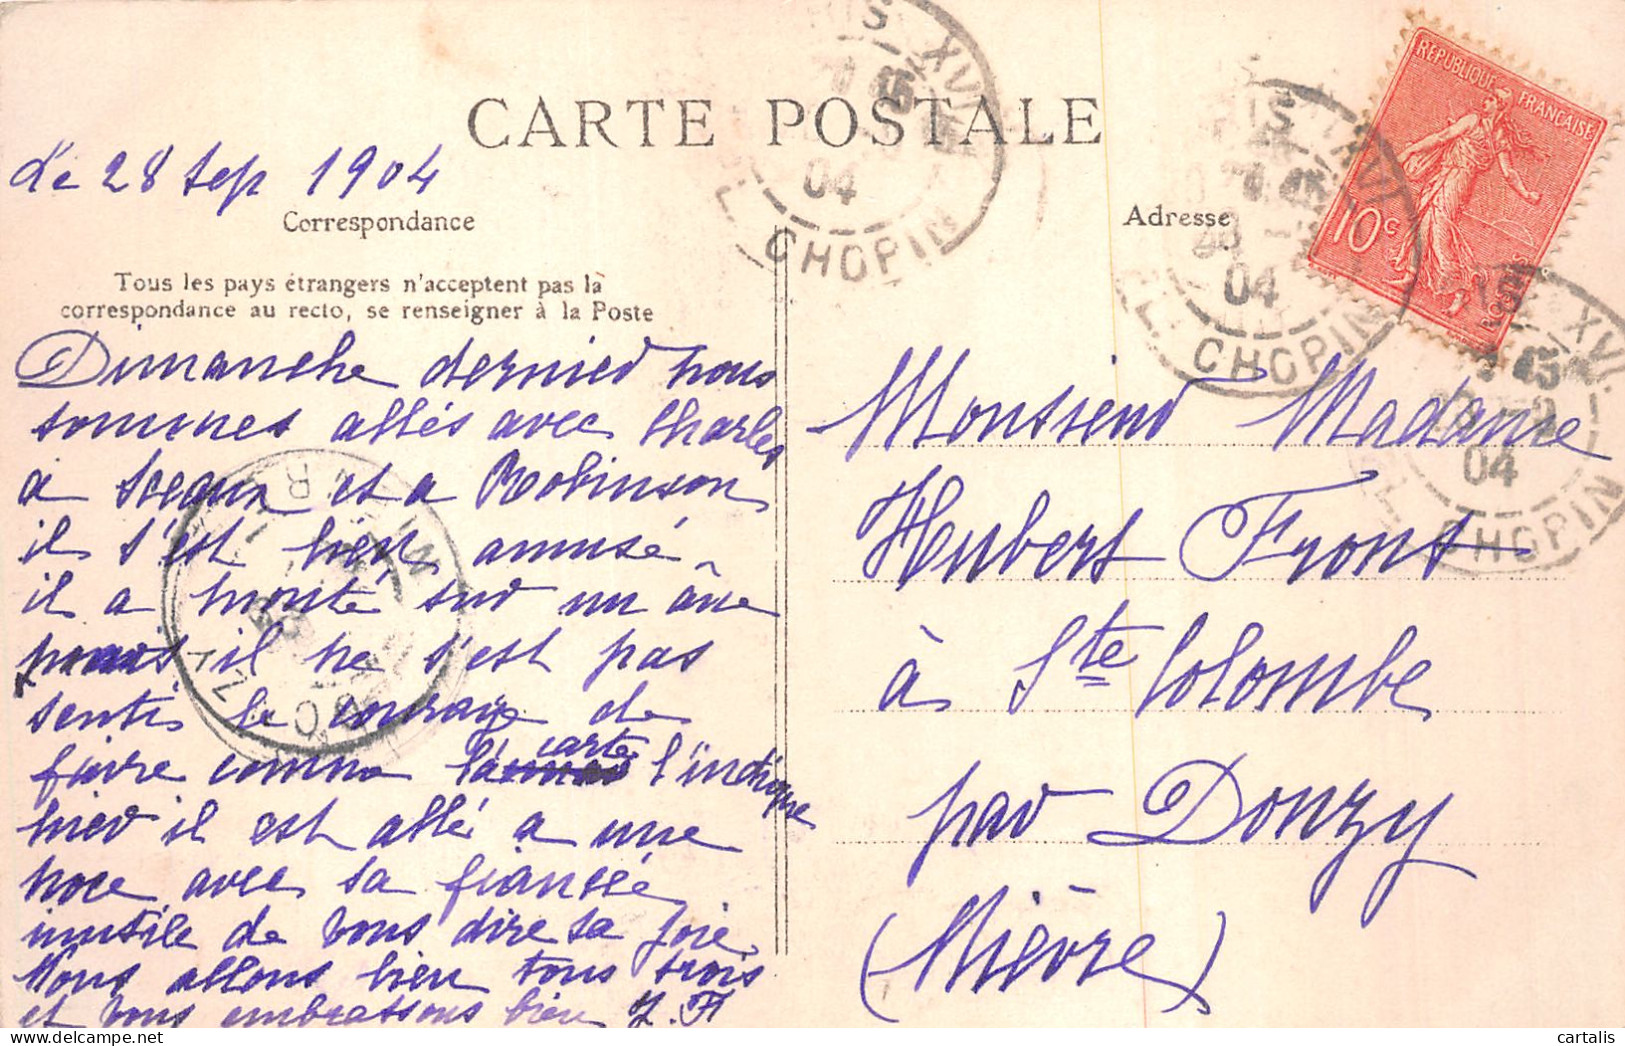 CARTE POSTALE
Le 28 Sep 1904
Correspondance
Adresse
Tous les pays étrangers n'acceptent pas la
correspondance au recto, se renseigner à la Poste
Dimanche dernier nous
sommes allés avec Charles
a Sceaux et a Robinson
il s'est bien amusé
il a monté sur un âne
mais il ne s'est pas
senti le courage de
faire comme la carte l'indique
hier il est allé a une
noce avec sa fiancée
inutile de vous dire sa joie
Nous allons bien tous trois
et vous embrassons bien
Monsieur Madame
Hubert Front
à Ste Colombe
par Donzy
(Nièvre)
REPUBLIQUE FRANÇAISE
10 c
XVI
04
CHOPIN
XVI
04
CHOPIN
XVI
04
CHOPIN
cartalis